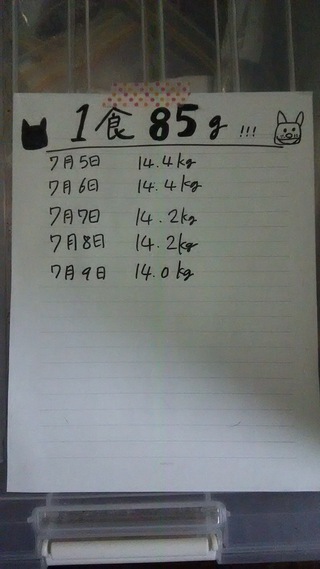 1食 85g !!!
7月5日 14.4kg
7月6日 14.4kg
7月7日 14.2kg
7月8日 14.2kg
7月9日 14.0kg